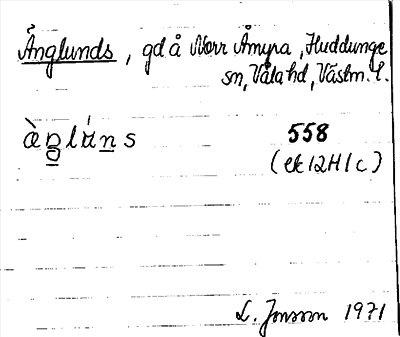 Änglunds, gd å Norr Åmyra, Huddunge
sn, Våla hd, Västm. l.
558
(ek 12H1c)
L. Jonsson 1971